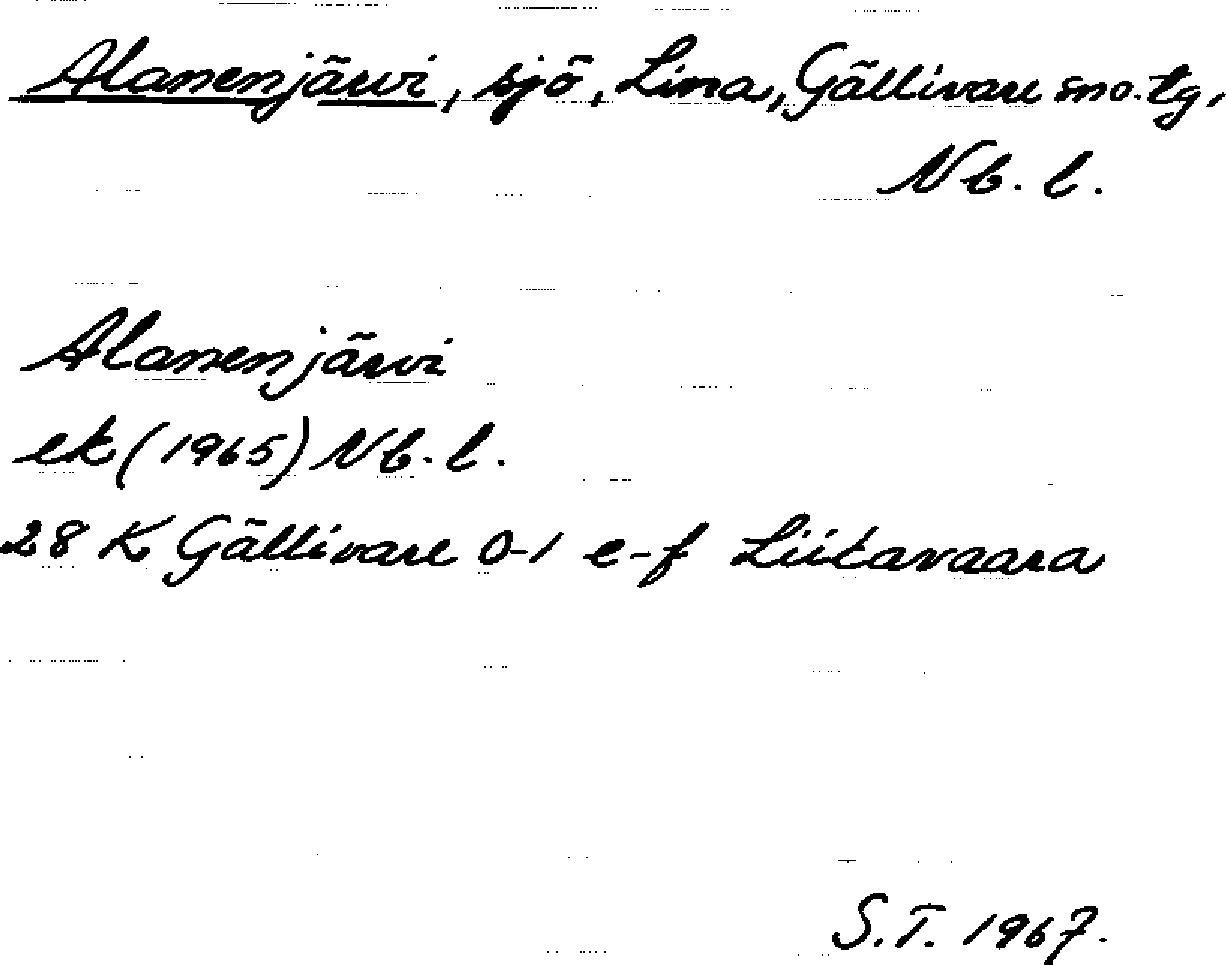 Alanenjärvi, sjö, Lina, Gällivare sno. tg,
Nb. l.
Alanenjärvi
ek (1965) Nb. l.
28 K Gällivare 0-1 e-f Liikavaara
S.T. 1967.